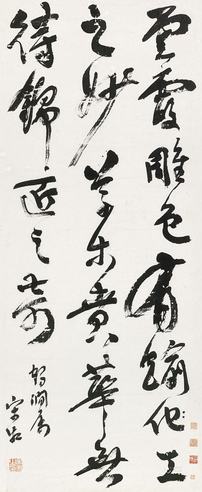 雲霞雕色有踰化工
之妙草木賁華無
待錦匠之奇